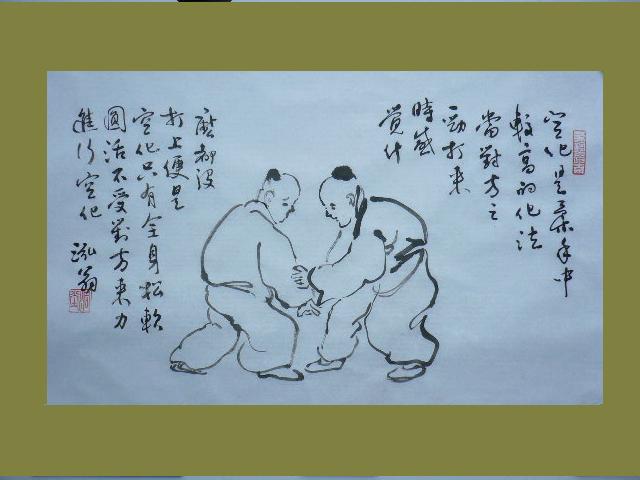 空化是柔手中
較高的化法
當對方之
勁打來
時感
覺什
麼都沒
打上便是
空化只有全身松軟
圓活不受對方來力
進行空化
泓翁